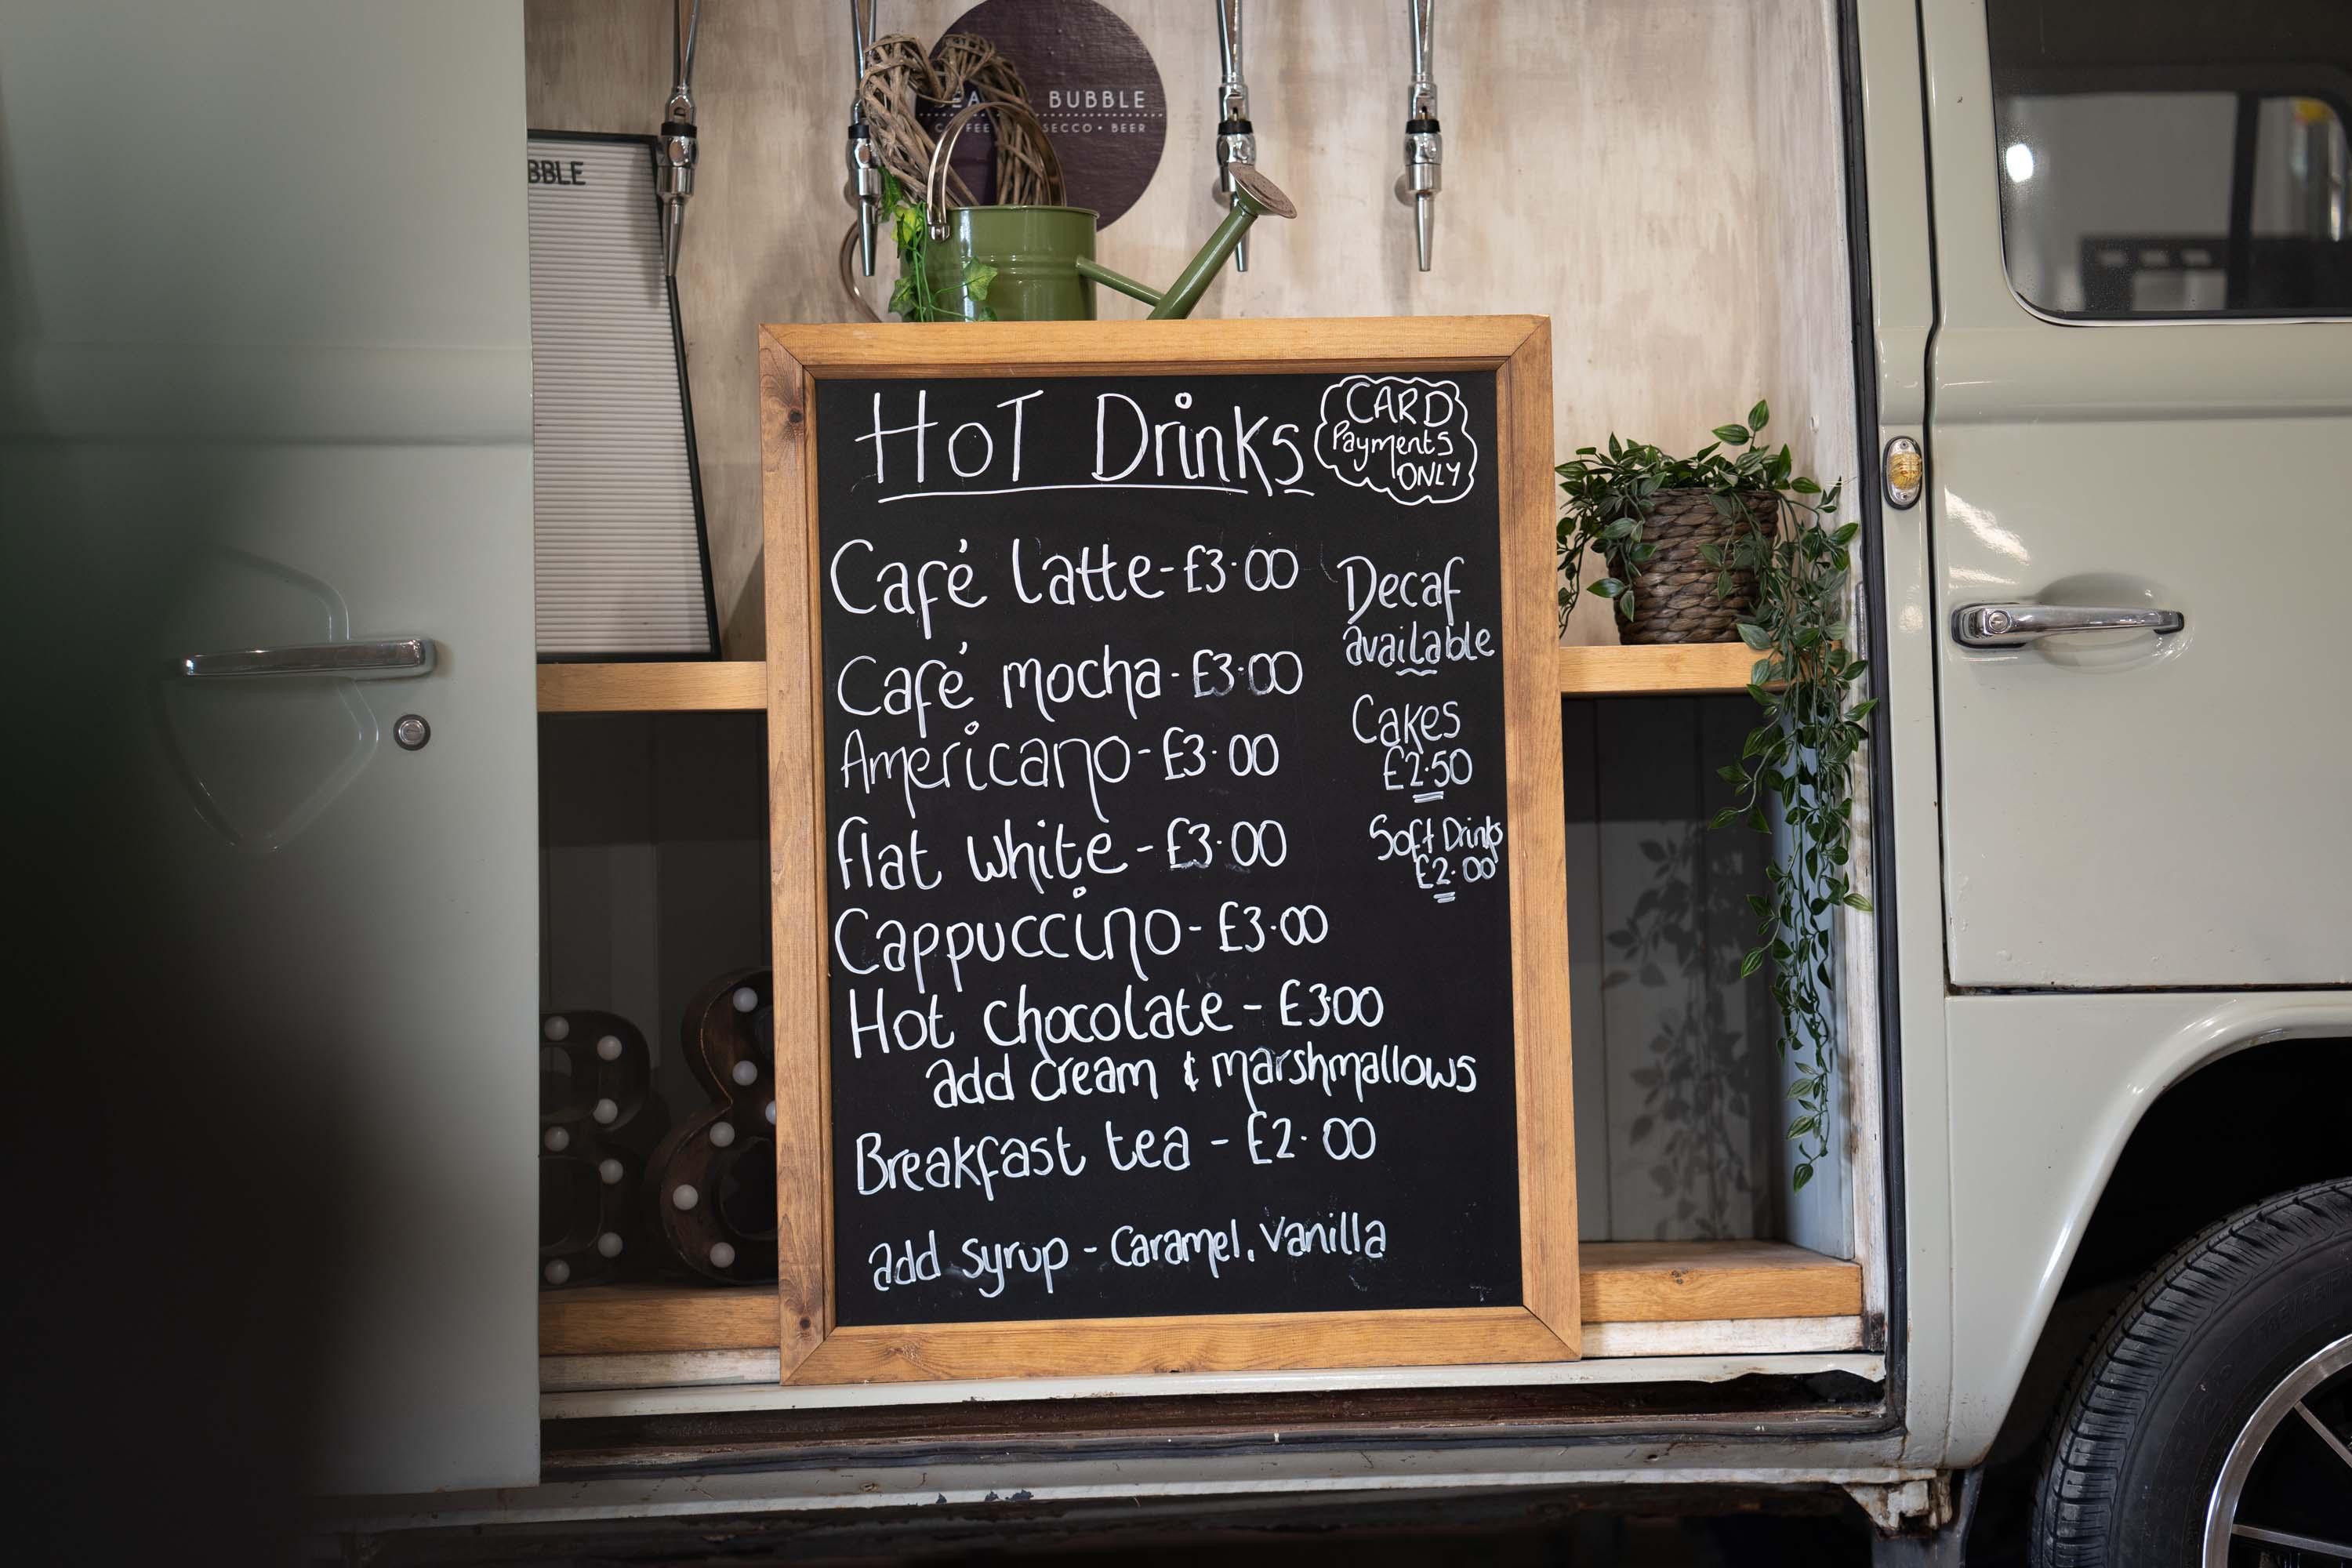 BUBBLE
SECCO • BEER
BBLE
HoT Drinks
CARD
Payments
ONLY
Café latte - £3.00
Café mocha - £3.00
Americano - £3.00
flat white - £3.00
Cappuccino - £3.00
Hot chocolate - £3.00
add cream & marshmallows
Breakfast tea - £2.00
add syrup - Caramel, Vanilla
Decaf
available
Cakes
£2.50
Soft Drinks
£2.00